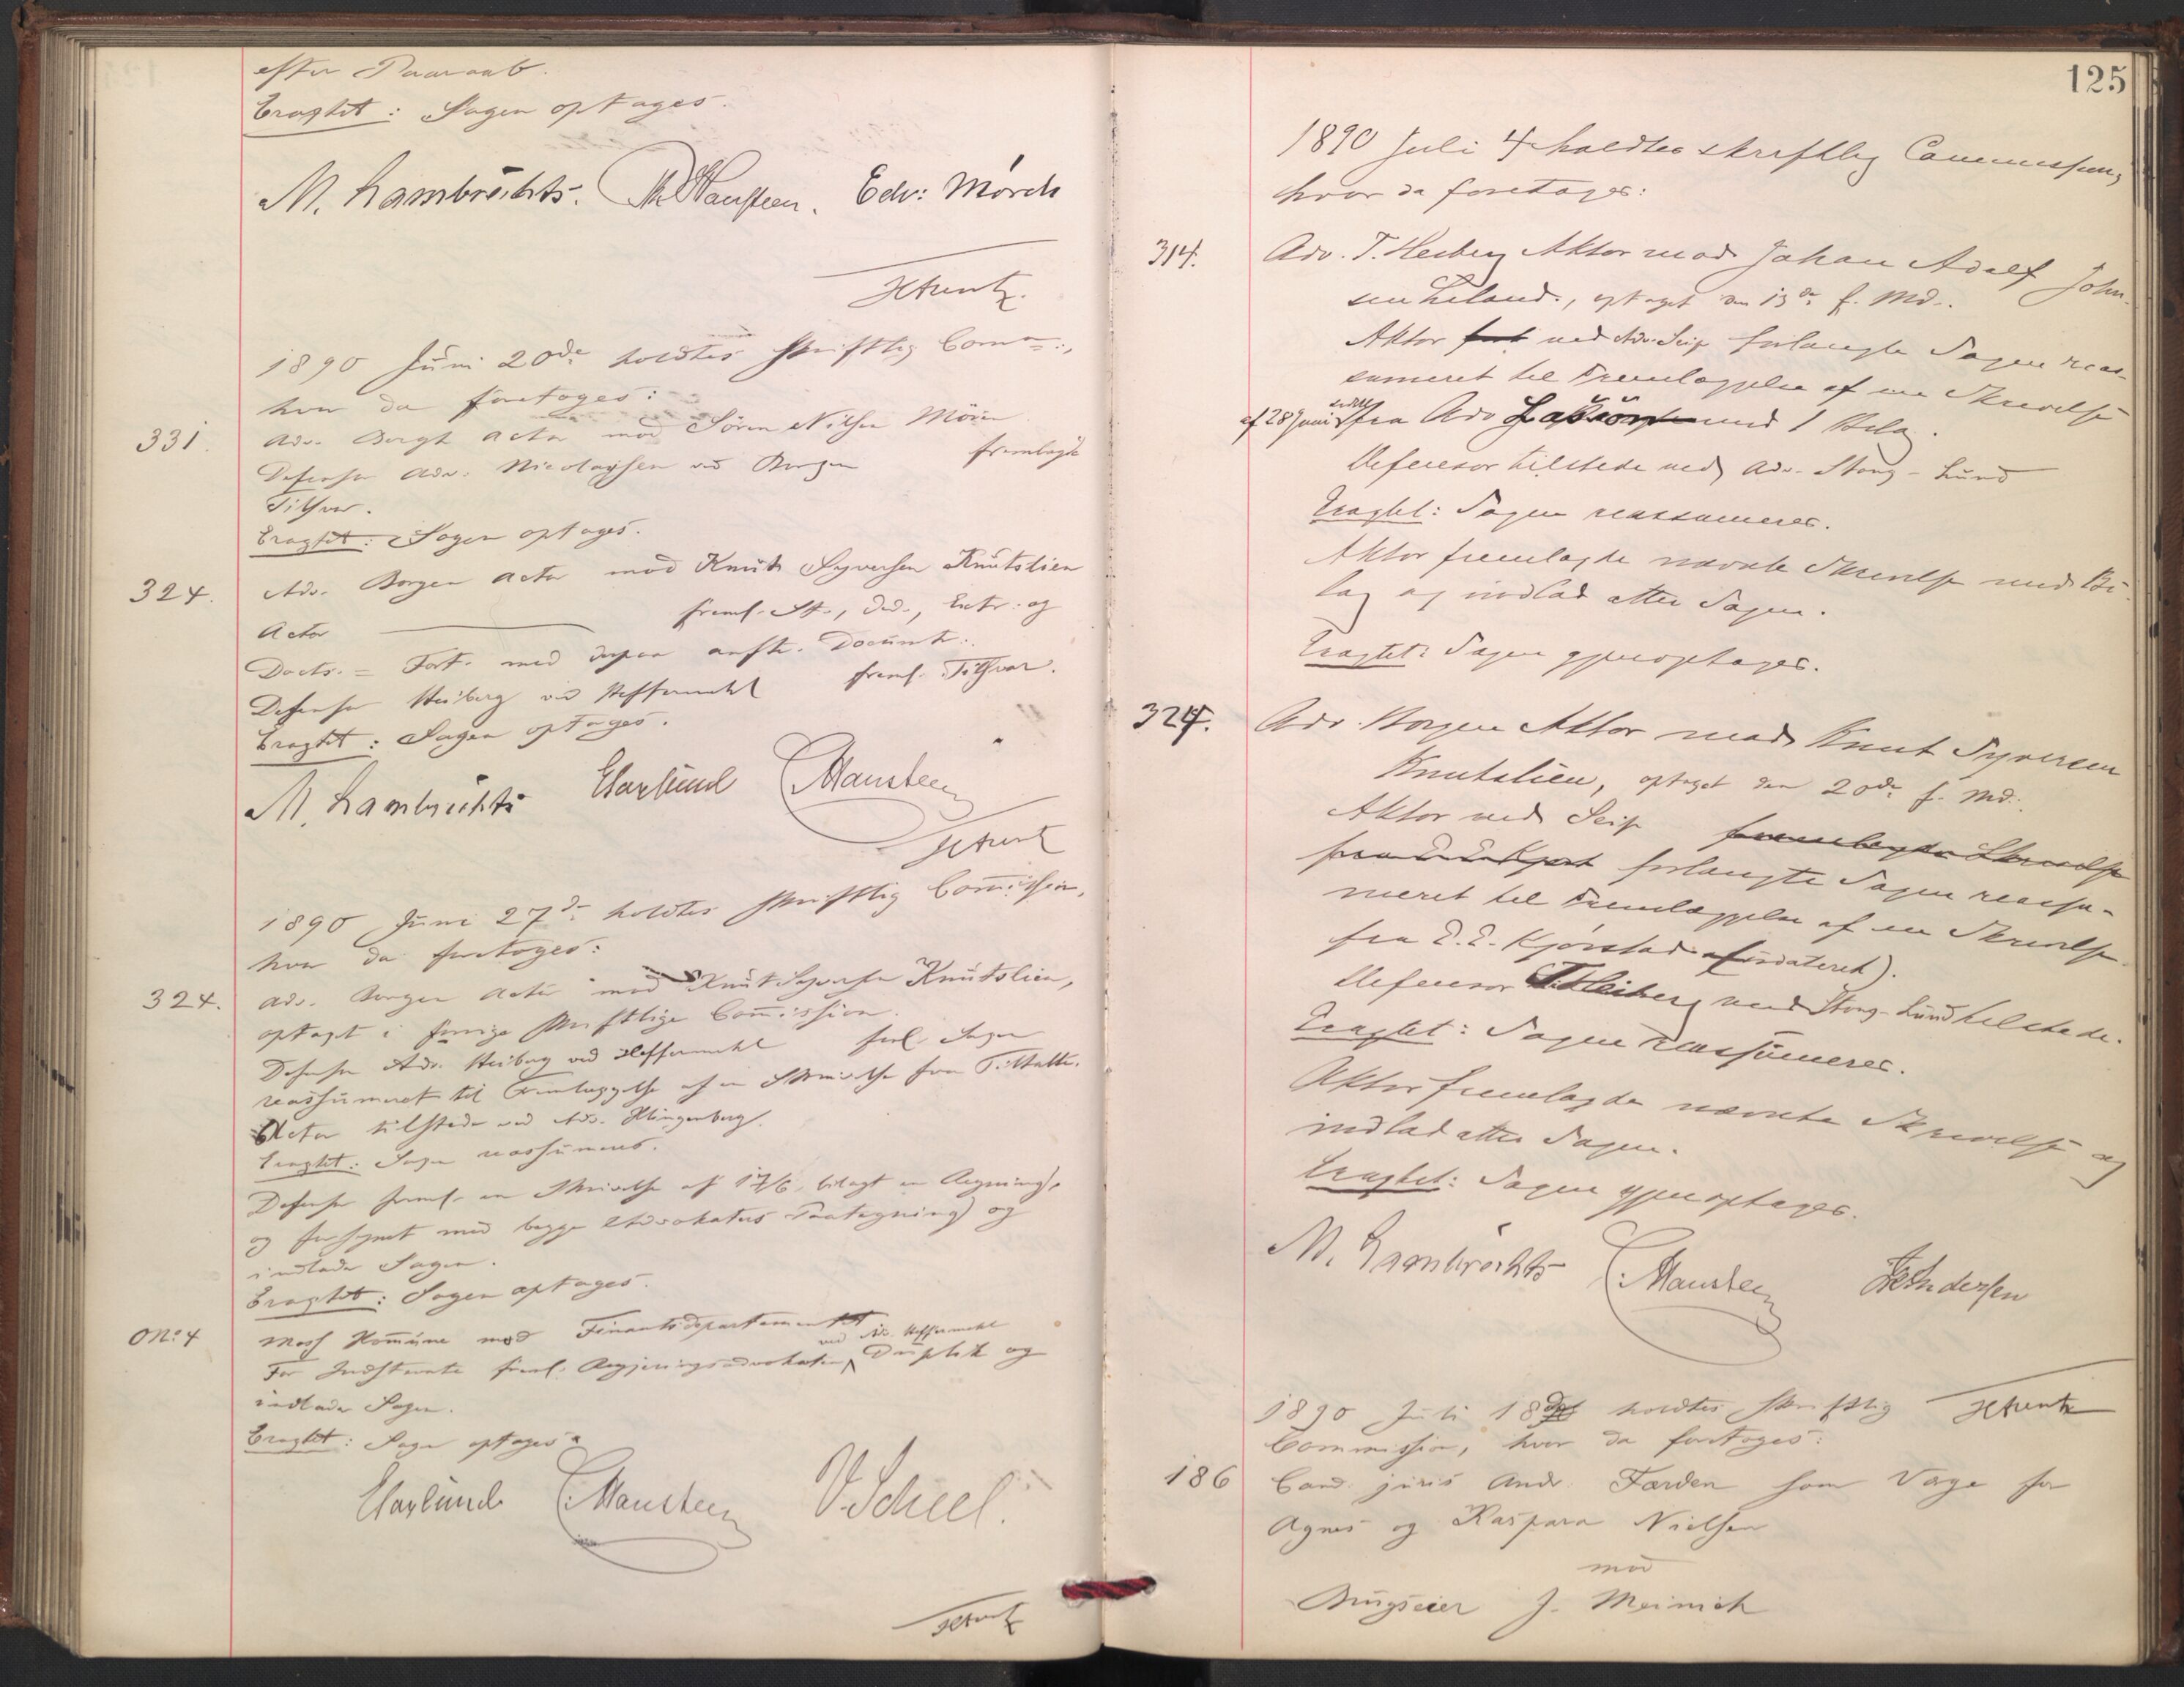 efter Paaraab.
Eragtet: Sagen optages.
M. Lambrechts. Edv: Mørch
1890 Juni 20de holdtes skriftlig Comm:,
hvor da foretoges:
331. Adv. Bergh Actor mod Søren Nilsen Moen
Defensor Adv. Nicolaysen ved Borgen fremlagde
Tilsvar.
Eragtet: Sagen optages.
324. Adv. Borgen Actor mod Knut Syversen Knutslien
Actor freml. St., Ded., Extr. og
Docts. = Fort. med deri anførte Documenter.
Defensor Heiberg ved Heffermehl freml. Tilsvar.
Eragtet: Sagen optages.
M. Lambrechts Hansteen
1890 Juni 27de holdtes skriftlig Commission,
hvor da foretoges:
324. Adv. Borgen Actor mod Knut Syversen Knutslien,
optaget i forrige skriftlige Commission.
Defensor Adv. Heiberg ved Heffermehl forl. Sagen
reassumeret til Fremlæggelse af en Skrivelse fra
Actor tilstede ved Adv. Klingenberg.
Eragtet: Sagen reassumeres.
Defensor freml. en Skrivelse af 17/6, bilagt en Regning,
og forsynet med begge Advokaters Paategning og
indlader Sagen.
Eragtet: Sagen optages.
No. 4 Moss Kommune mod Finantsdepartementet
ved Adv. Heffermehl
For Indstevnte freml. Regjeringsadvokaten Duplik og
indlader Sagen.
Eragtet: Sagen optages.
Hansteen V. Scheel.
125
1890 Juli 4 holdtes skriftlig Commission,
hvor da foretoges:
314. Adv. T. Heiberg Aktor mod Johan Adolf John-
sen Leland, optaget den 13de f. Md.
Aktor ved Adv. Seip forlangte Sagen reas-
sumeret til Fremlæggelse af en Skrivelse
af 28 Juni fra Adv med 1 Bilag.
Defensor tilstede ved Adv. Stang-Lund
Eragtet: Sagen reassumeres.
Aktor fremlagde nævnte Skrivelse med Bi-
lag og indlod atter Sagen.
Eragtet: Sagen gjenoptages.
324. Adv. Borgen Aktor mod Knut Syversen
Knutslien, optaget den 20de f. Md.
Aktor ved Seip fremlagde Skrivelse
forlangte Sagen reassu-
meret til Fremlæggelse af en Skrivelse
fra E. E. Kjørstad udateret).
Defensor T. Heiberg ved Stang-Lund tilstede.
Eragtet: Sagen reassumeres.
Aktor fremlagde nævnte Skrivelse og
indlod atter Sagen.
Eragtet: Sagen gjenoptages.
M. Lambrechts Hansteen
1890 Juli 18de holdtes skriftlig
Commission, hvor da foretoges:
186 Cand. juris Andr. Færden som Værge for
Agnes og Kaspara Nielsen
mod
Brugseier J. Meinich